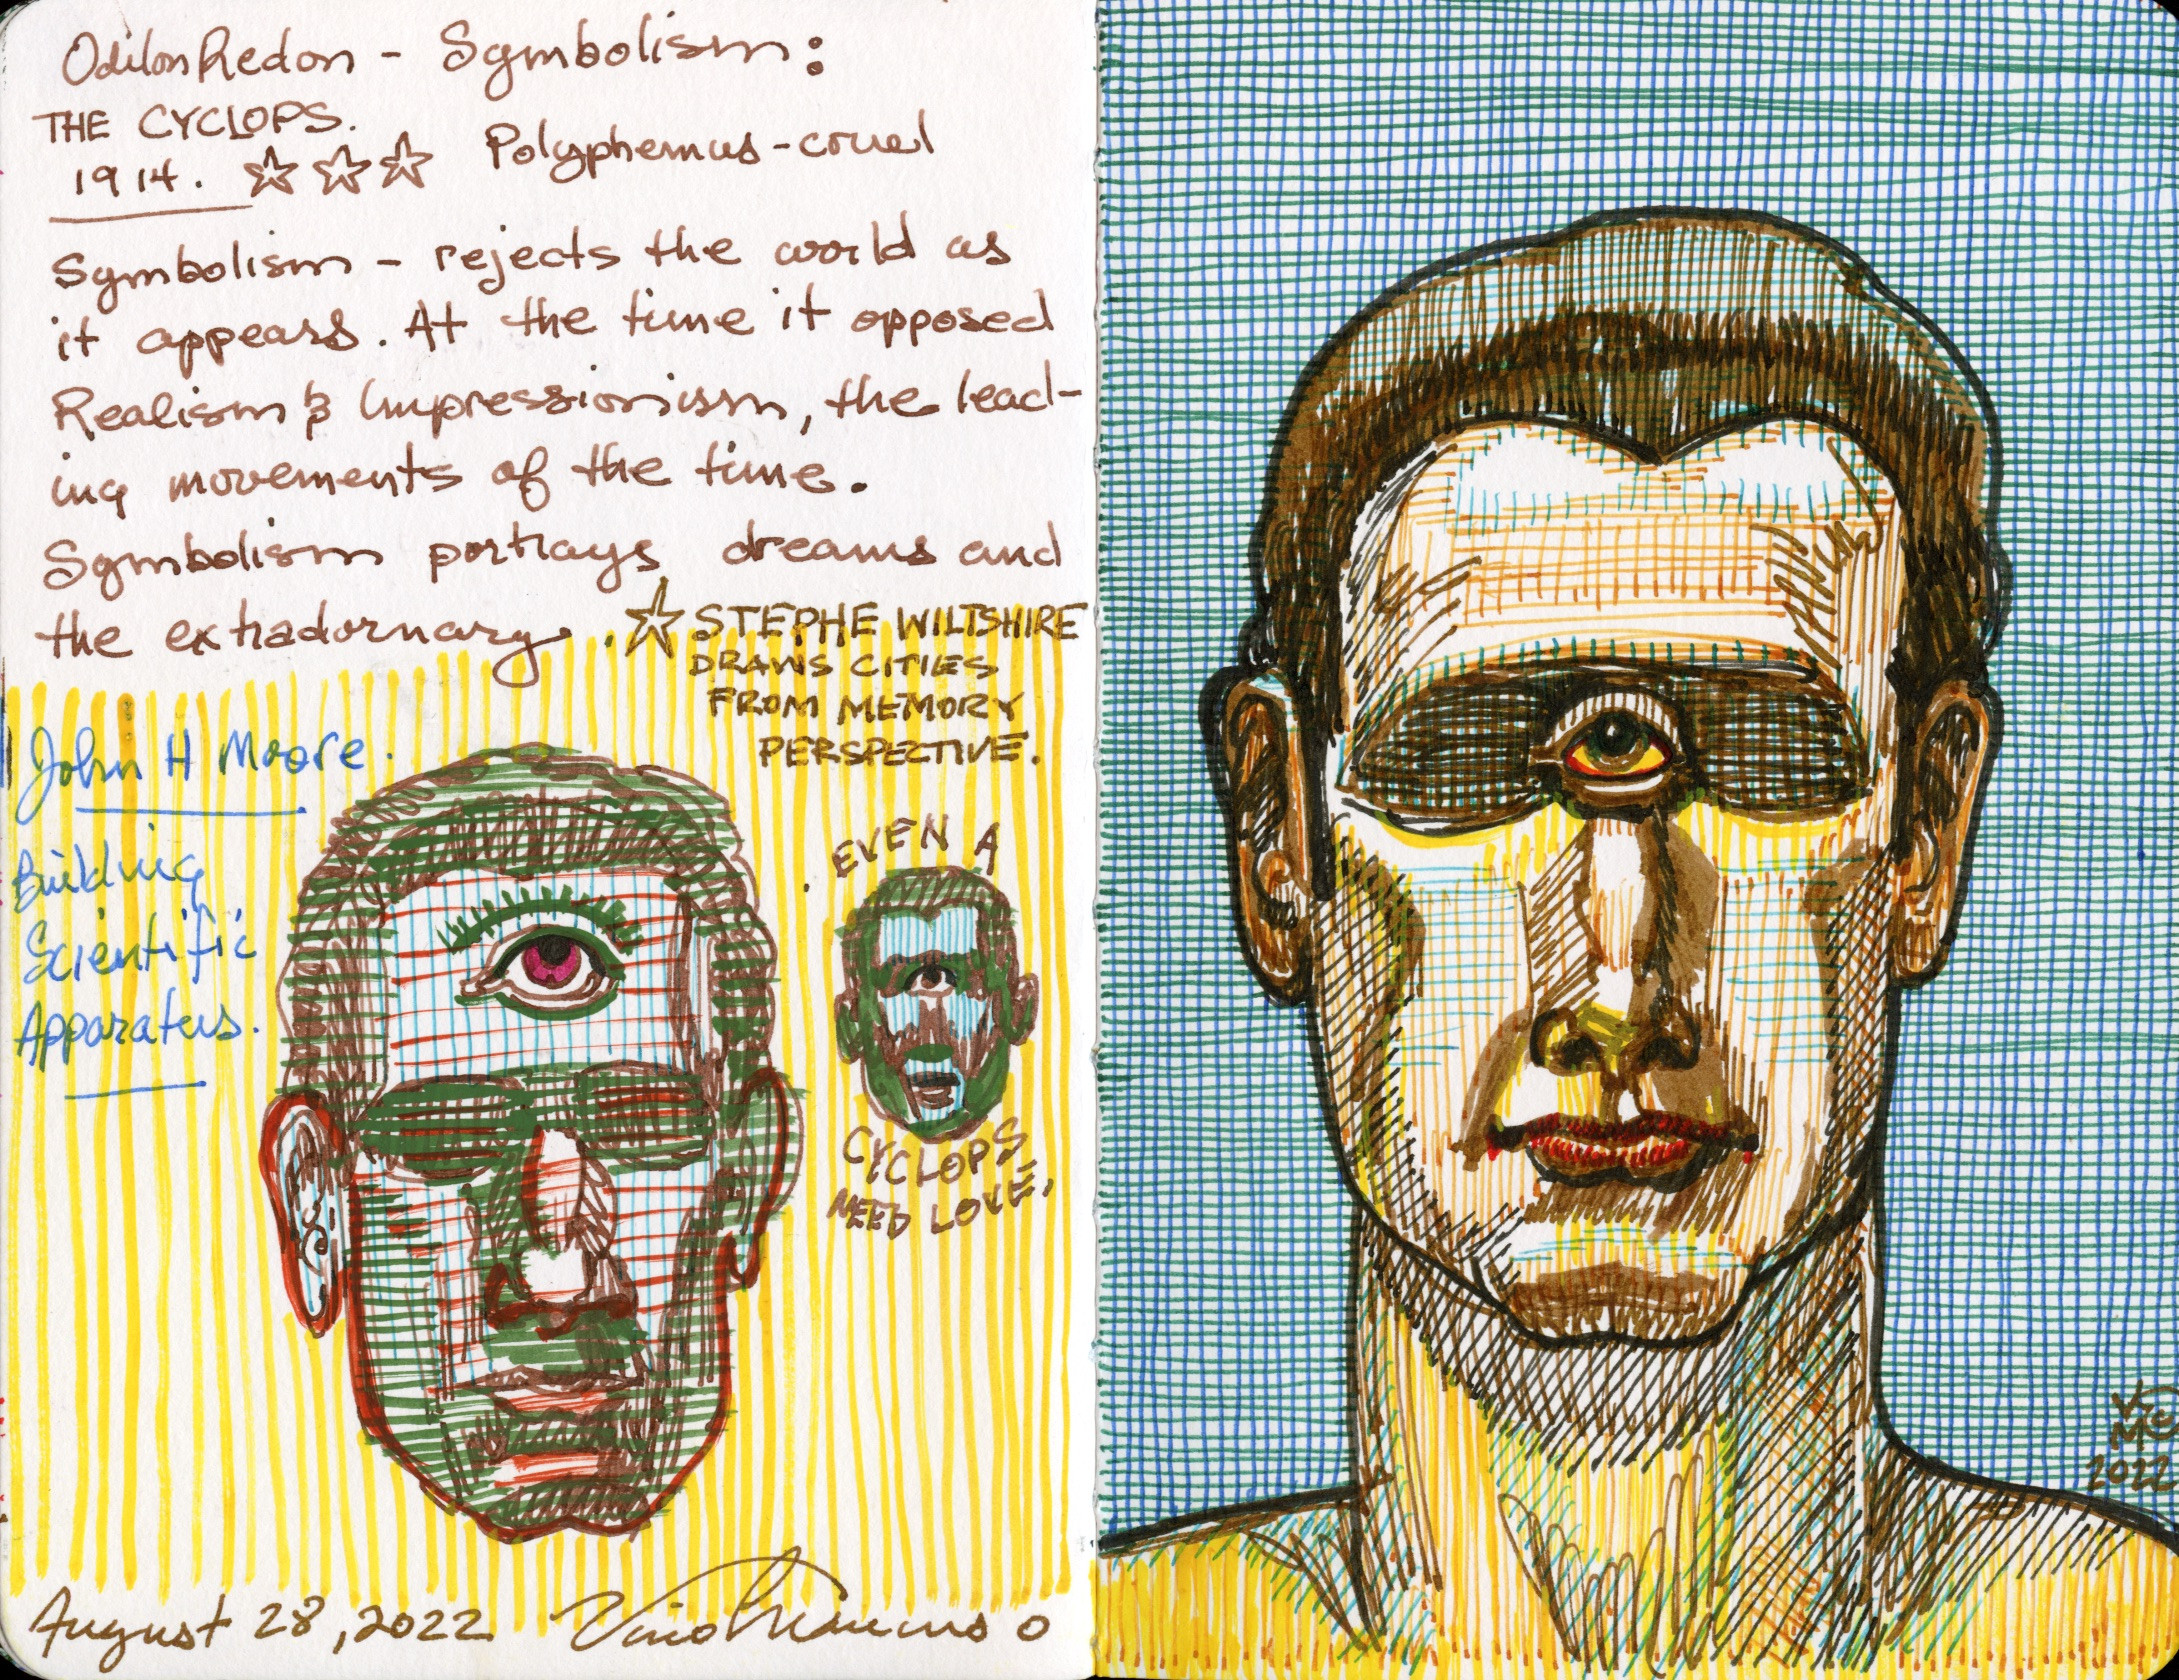 Odilon Redon - Symbolism:
THE CYCLOPS.
1914. ☆☆☆ Polyphemus - cruel
Symbolism - rejects the world as
it appears. At the time it opposed
Realism & Impressionism, the lead-
ing movements of the time.
Symbolism portrays dreams and
the extradornary. .
☆ STEPHE WILTSHIRE
DRAWS CITIES
FROM MEMORY
PERSPECTIVE.
John H Moore.
Building
Scientific
Apparatus.
EVEN A
CYCLOPS
NEED LOVE.
August 28, 2022
2022